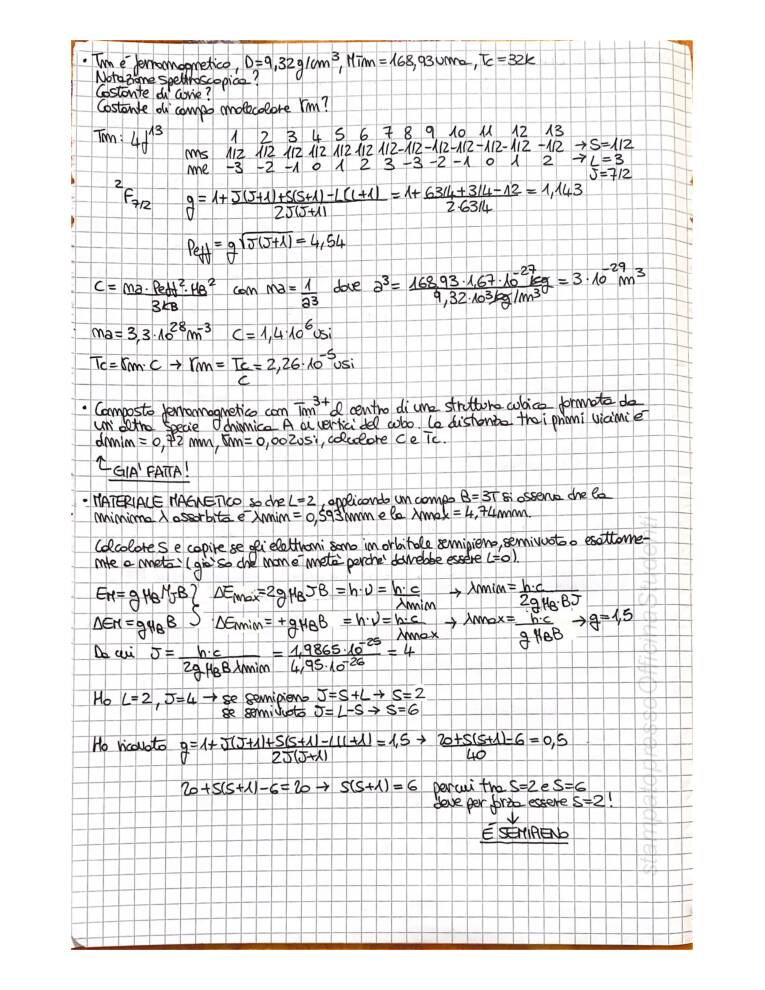 • Tm è ferromagnetico, D=9,32g/cm³, MTm=168,93 uma, Tc=32K
Notazione spettroscopica?
Costante di Curie?
Costante di campo molecolare γm?
Tm: 4f¹³ 1 2 3 4 5 6 7 8 9 10 11 12 13
ms 1/2 1/2 1/2 1/2 1/2 1/2 1/2 -1/2 -1/2 -1/2 -1/2 -1/2 -1/2 → S=1/2
me -3 -2 -1 0 1 2 3 -3 -2 -1 0 1 2 → L=3
J=7/2
²F7/2 g = 1+ J(J+1)+S(S+1)-L(L+1) / 2J(J+1) = 1+ 63/4+3/4-12 / 2·63/4 = 1,143
Peff = g√J(J+1) = 4,54
C = ma·Peff²·μB² / 3kB con ma = 1/a³ dove a³ = 168,93·1,67·10⁻²⁷ kg / 9,32·10³ kg/m³ = 3·10⁻²⁹ m³
ma = 3,3·10²⁸ m⁻³ C = 1,4·10⁶ usi
Tc=γm·C → γm = Tc/C = 2,26·10⁻⁵ usi
• Composto ferromagnetico con Tm³⁺ al centro di una struttura cubica formata da
un'altra specie chimica A ai vertici del cubo. La distanza tra i primi vicini è
dmin = 0,72 nm, γm=0,002usi, calcolare C e Tc.
↑ GIA' FATTA!
• MATERIALE MAGNETICO so che L=2, applicando un campo B=3T si osserva che la
minima λ assorbita è λmin=0,593mm e la λmax=4,74mm.
Calcolare S e capire se gli elettroni sono in orbitale semipieno, semivuoto o esattame-
nte a metà (già so che non è metà perché dovrebbe essere L=0).
EM=gμBMJB } ΔEmax=2gμBJB = h·ν = h·c / λmin → λmin = h·c / 2gμB·BJ
ΔEM=gμBB ΔEmin=+gμBB = h·ν = h·c / λmax → λmax = h·c / gμBB → g=1,5
Da cui J = h·c / 2gμBBλmin = 1,9865·10⁻²⁵ / 4,95·10⁻²⁶ = 4
Ho L=2, J=4 → se semipieno J=S+L → S=2
se semivuoto J=L-S → S=6
Ho ricavato g = 1+ J(J+1)+S(S+1)-L(L+1) / 2J(J+1) = 1,5 → 20+S(S+1)-6 / 40 = 0,5
20+S(S+1)-6=20 → S(S+1)=6 per cui tra S=2 e S=6
deve per forza essere S=2!
↓
È SEMIPIENO
stampato presso Officine Studenti